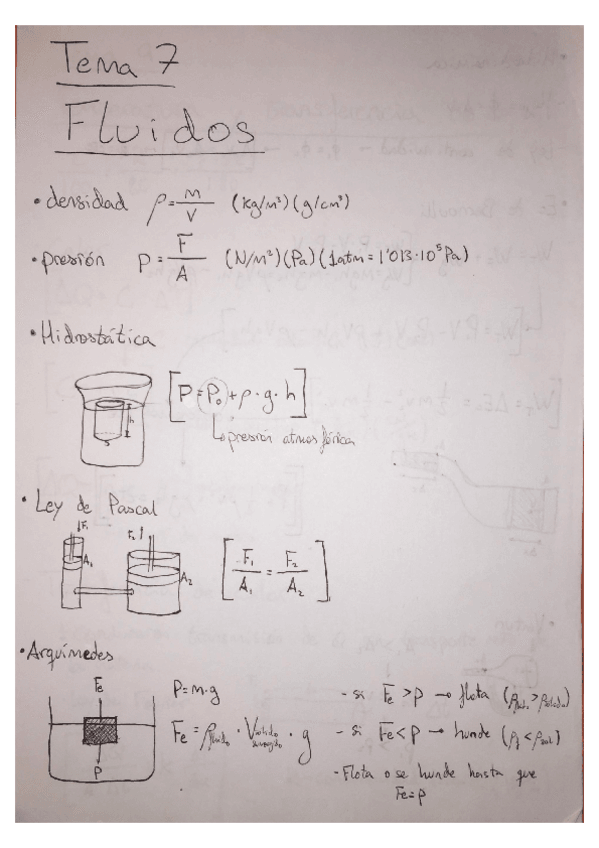 Tema 7
Fluidos
• densidad ρ = m/V (kg/m³)(g/cm³)
• presión P = F/A (N/m²)(Pa)(1atm = 1'013·10⁵Pa)
• Hidrostática
h
S
[P = P₀ + ρ · g · h]
↳ presión atmosférica
• Ley de Pascal
↓F₁ F₂↑
A₁ A₂
[F₁/A₁ = F₂/A₂]
• Arquímedes
Fe
P
P = m·g
Fe = ρfluido · Vsólido sumergido · g
- si Fe > P → flota (ρfluido > ρsólido)
- si Fe < P → hunde (ρf < ρsol)
- Flota o se hunde hasta que
Fe = P